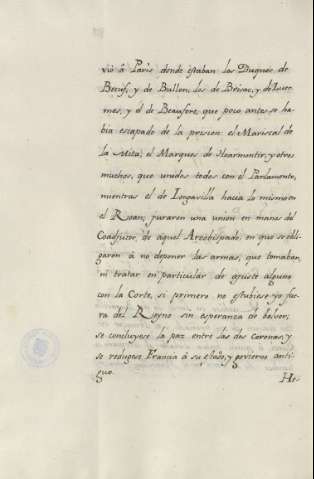 vió á Paris donde estaban los Duques de
Beeuf, y de Bullon, los de Brisac, y de Luce
nes, y el de Beaufort que poco antes se ha
bia escapado de la prision el Mariscal de
la Mota, el Marques de Noarmontir, y otros
muchos, que unidos todos con el Parlamento,
mientras el de Longavilla hacia lo mismo en
el Roan, juraron una union en manos del
Coadjutor, de aquel Arzobispado, en que se obli
garon á no deponer las armas, que tomaban,
ni tratar en particular de ajuste alguno
con la Corte, si primero no estubiese yo fue
ra del Reyno sin esperanza de bolver,
se concluyese la paz entre las dos Coronas, y
se redugese Francia á su estado, y govierno anti
guo.
He